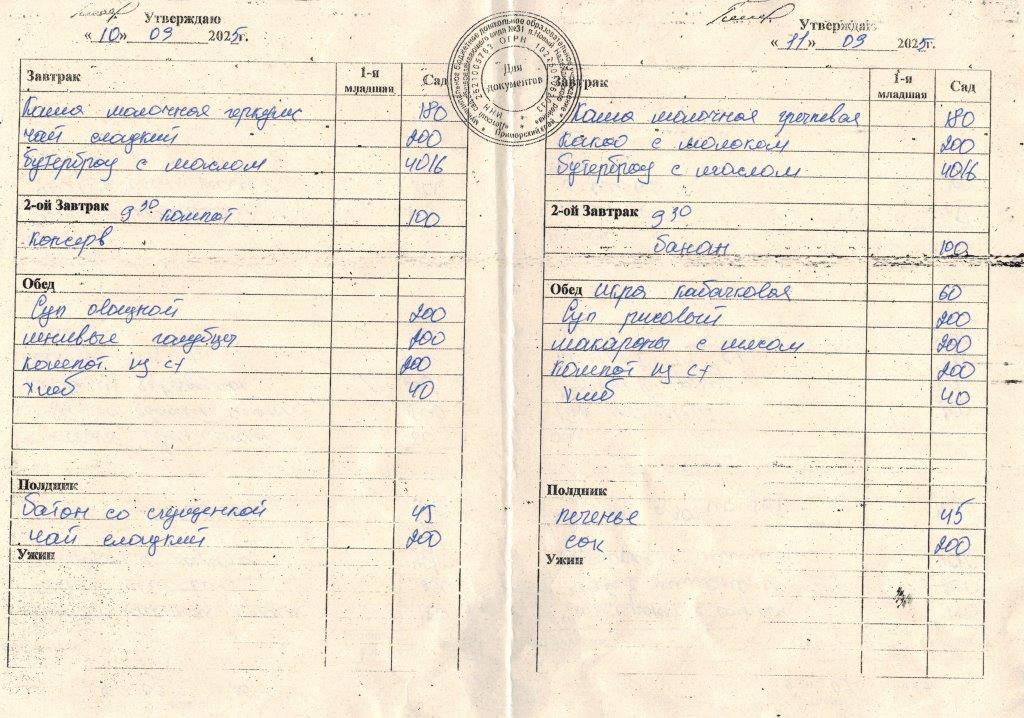 Утверждаю
«10» 09 2025г.
Завтрак 1-я младшая Сад
Каша молочная геркулес 180
чай сладкий 200
бутерброд с маслом 40/6
2-ой Завтрак 9 30 компот 100
консерв
Обед
Суп овощной 200
ленивые голубцы 200
компот из с/ 200
хлеб 40
Полдник
батон со сгущенкой 45
чай сладкий 200
Ужин
Для документов
Утверждаю
«11» 09 2025г.
Завтрак 1-я младшая Сад
Каша молочная гречневая 180
какао с молоком 200
бутерброд с маслом 40/6
2-ой Завтрак 9 30
банан 100
Обед икра кабачковая 60
Суп рисовый 200
макароны с мясом 200
компот из с/ 200
хлеб 40
Полдник
печенье 45
сок 200
Ужин